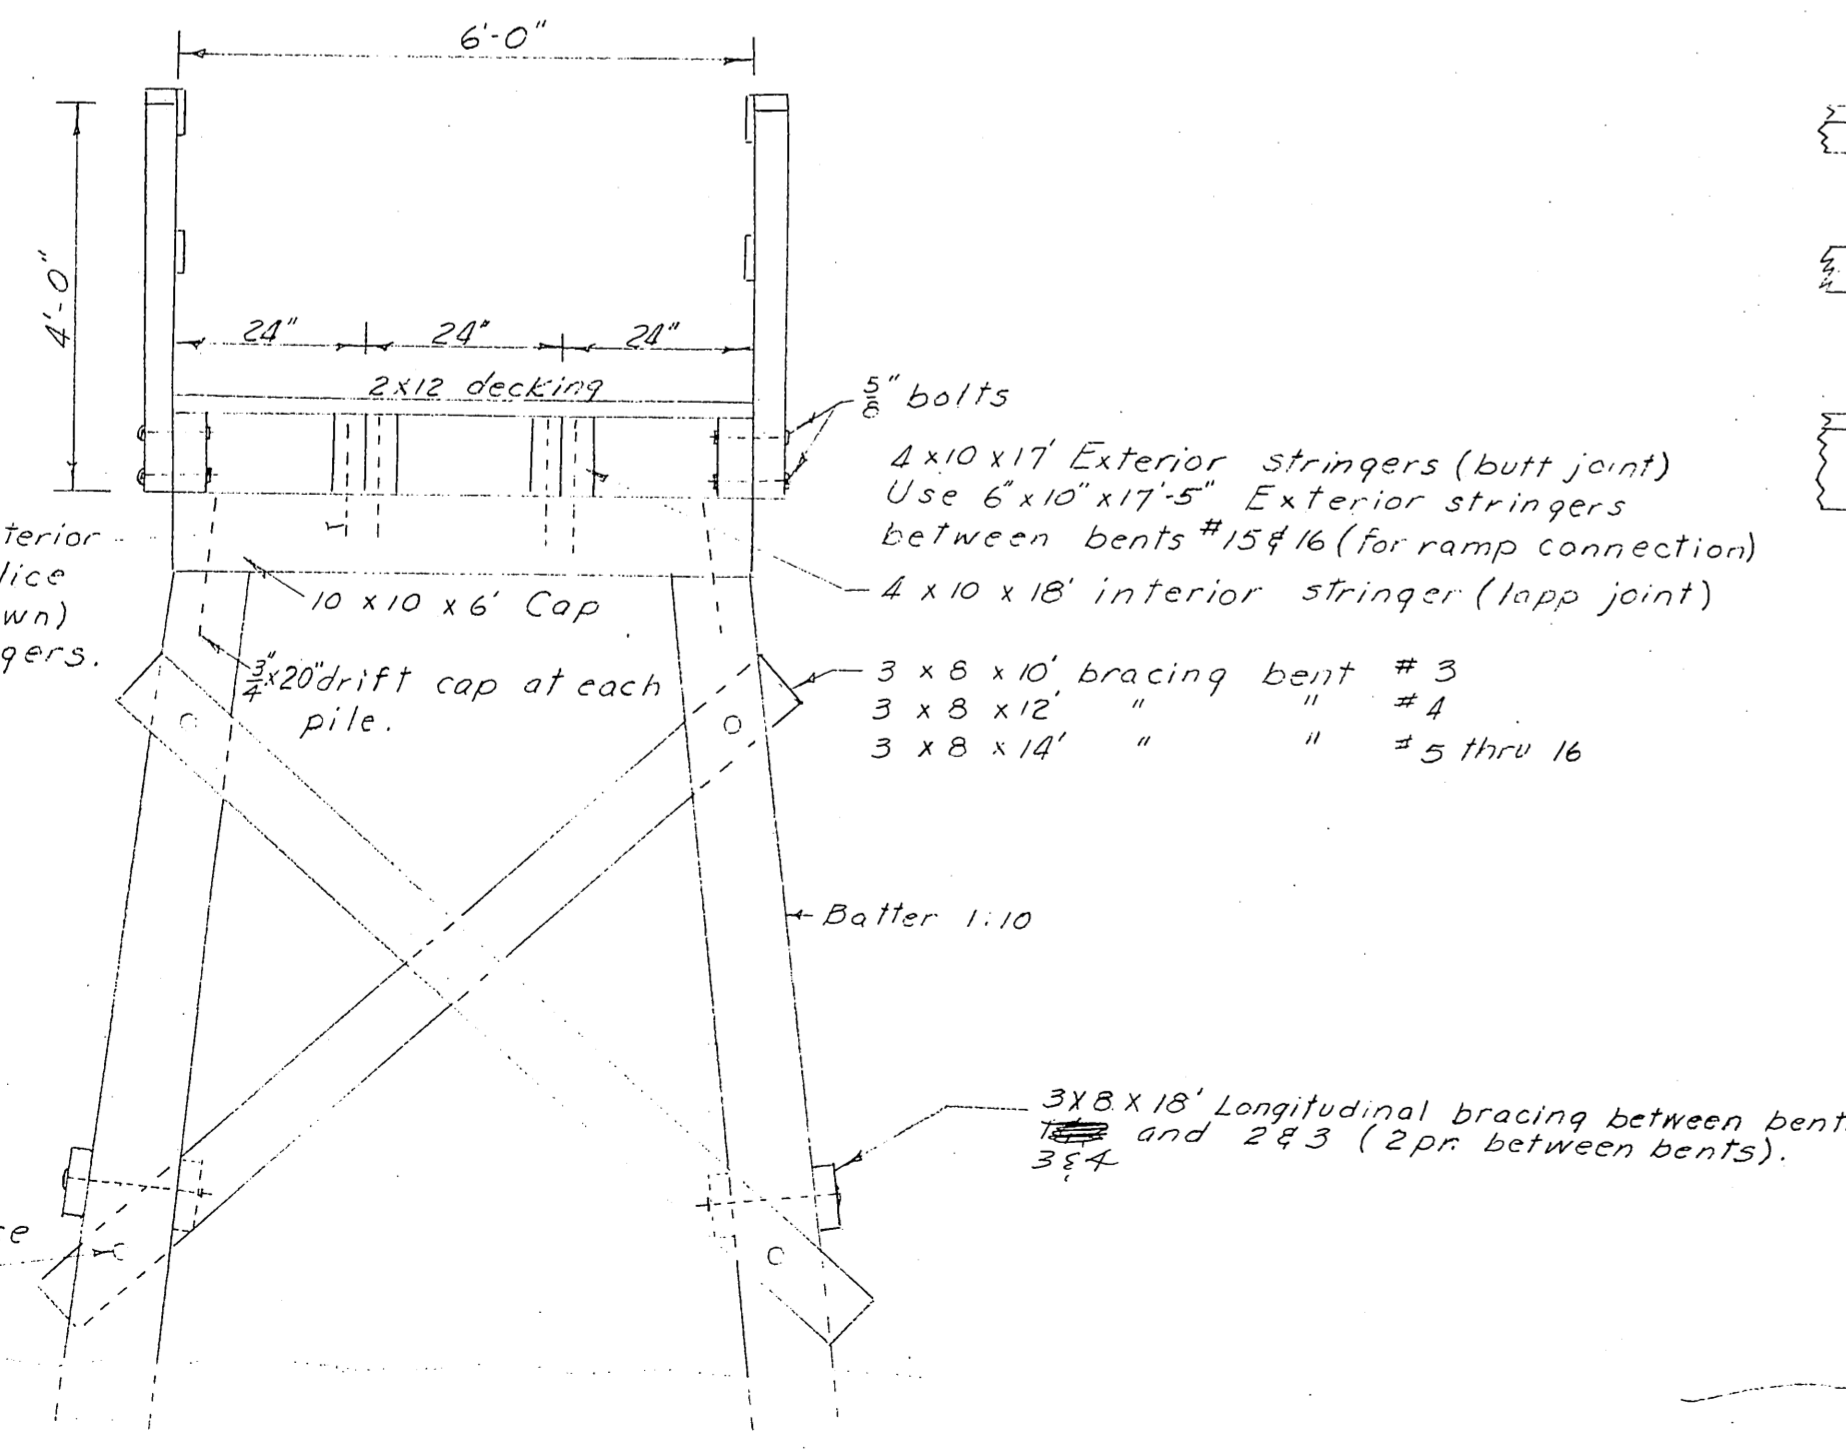 6'-0"
4'-0"
24" 24" 24"
2x12 decking
5/8" bolts
4 x 10 x 17' Exterior stringers (butt joint)
Use 6" x 10" x 17'-5" Exterior stringers
between bents #15 & 16 (for ramp connection)
4 x 10 x 18' interior stringer (lapp joint)
terior
lice
wn)
gers.
10 x 10 x 6' Cap
3/4" x 20" drift cap at each
pile.
3 x 8 x 10' bracing bent # 3
3 x 8 x 12' " " # 4
3 x 8 x 14' " " # 5 thru 16
Batter 1:10
3 x 8 x 18' Longitudinal bracing between bent
and 2 & 3 (2 pr. between bents).
3 & 4
re